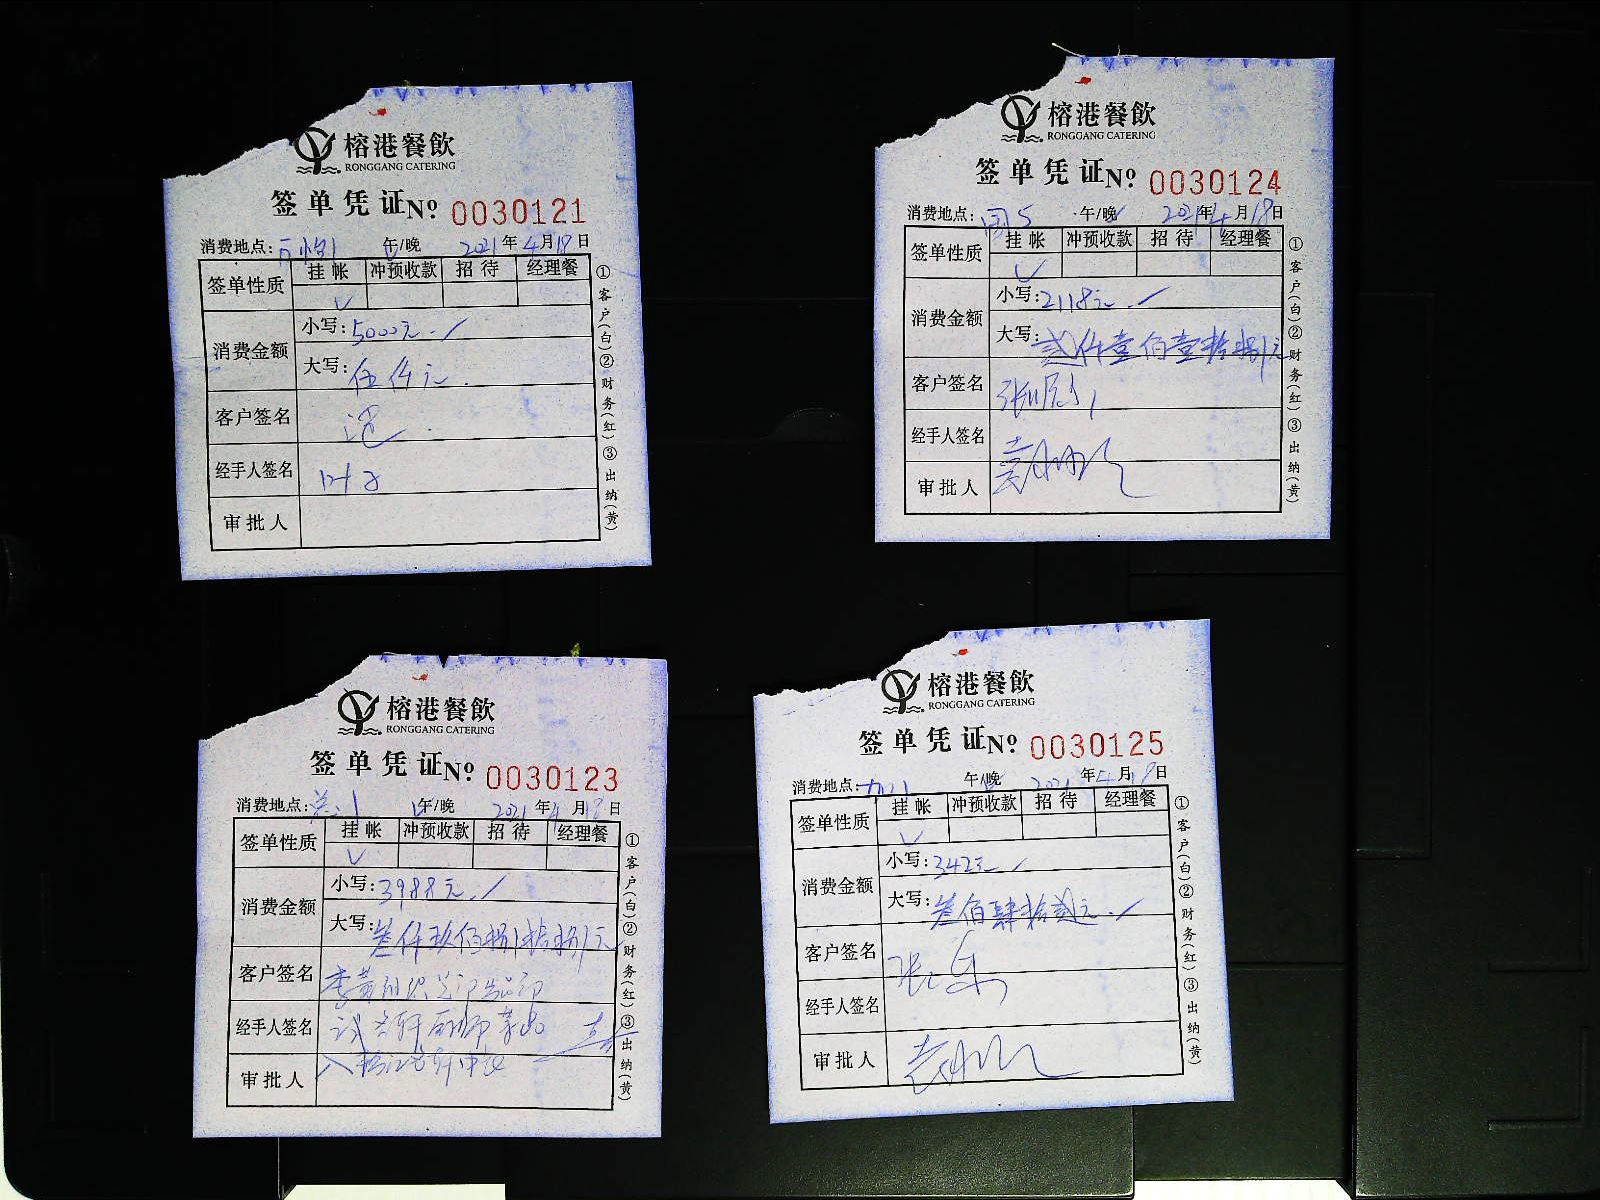 榕港餐飲
RONGGANG CATERING
签单凭证No 0030121
消费地点: 午/晚 2021年4月18日
签单性质 挂帐 冲预收款 招待 经理餐
消费金额 小写:5000元.
大写:伍仟元.
客户签名
经手人签名
审批人
①客户(白)②财务(红)③出纳(黄)
榕港餐飲
RONGGANG CATERING
签单凭证No 0030124
消费地点: 午/晚 2021年4月18日
签单性质 挂帐 冲预收款 招待 经理餐
消费金额 小写:2118元.
大写:贰仟壹佰壹拾捌元
客户签名
经手人签名
审批人
①客户(白)②财务(红)③出纳(黄)
榕港餐飲
RONGGANG CATERING
签单凭证No 0030123
消费地点: 午/晚 2021年4月18日
签单性质 挂帐 冲预收款 招待 经理餐
消费金额 小写:3988元.
大写:叁仟玖佰捌拾捌元
客户签名
经手人签名
审批人
①客户(白)②财务(红)③出纳(黄)
榕港餐飲
RONGGANG CATERING
签单凭证No 0030125
消费地点: 午/晚 2021年4月18日
签单性质 挂帐 冲预收款 招待 经理餐
消费金额 小写:342元
大写:叁佰肆拾贰元.
客户签名
经手人签名
审批人
①客户(白)②财务(红)③出纳(黄)